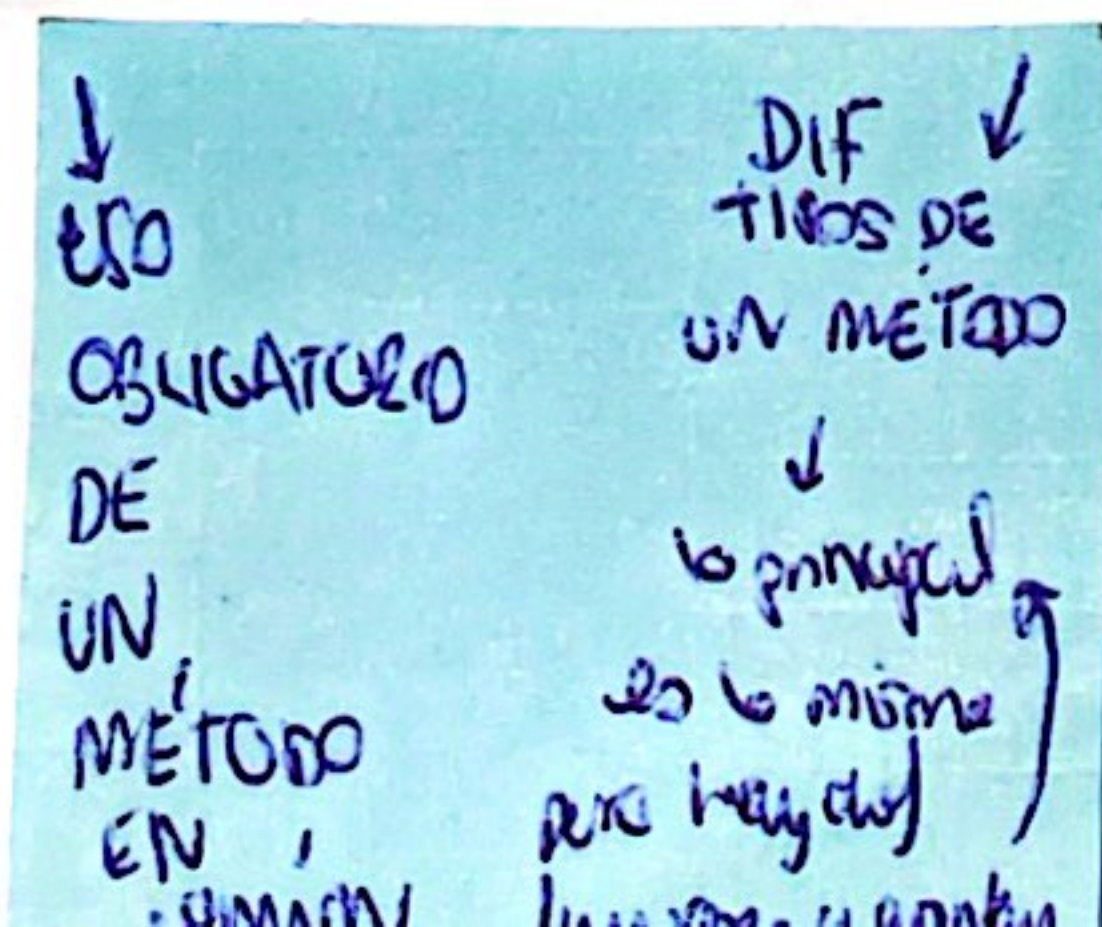 USO
OBLIGATORIO
DE
UN
MÉTODO
EN
DIF
TIPOS DE
UN MÉTODO
lo principal
es lo mismo
pero hay